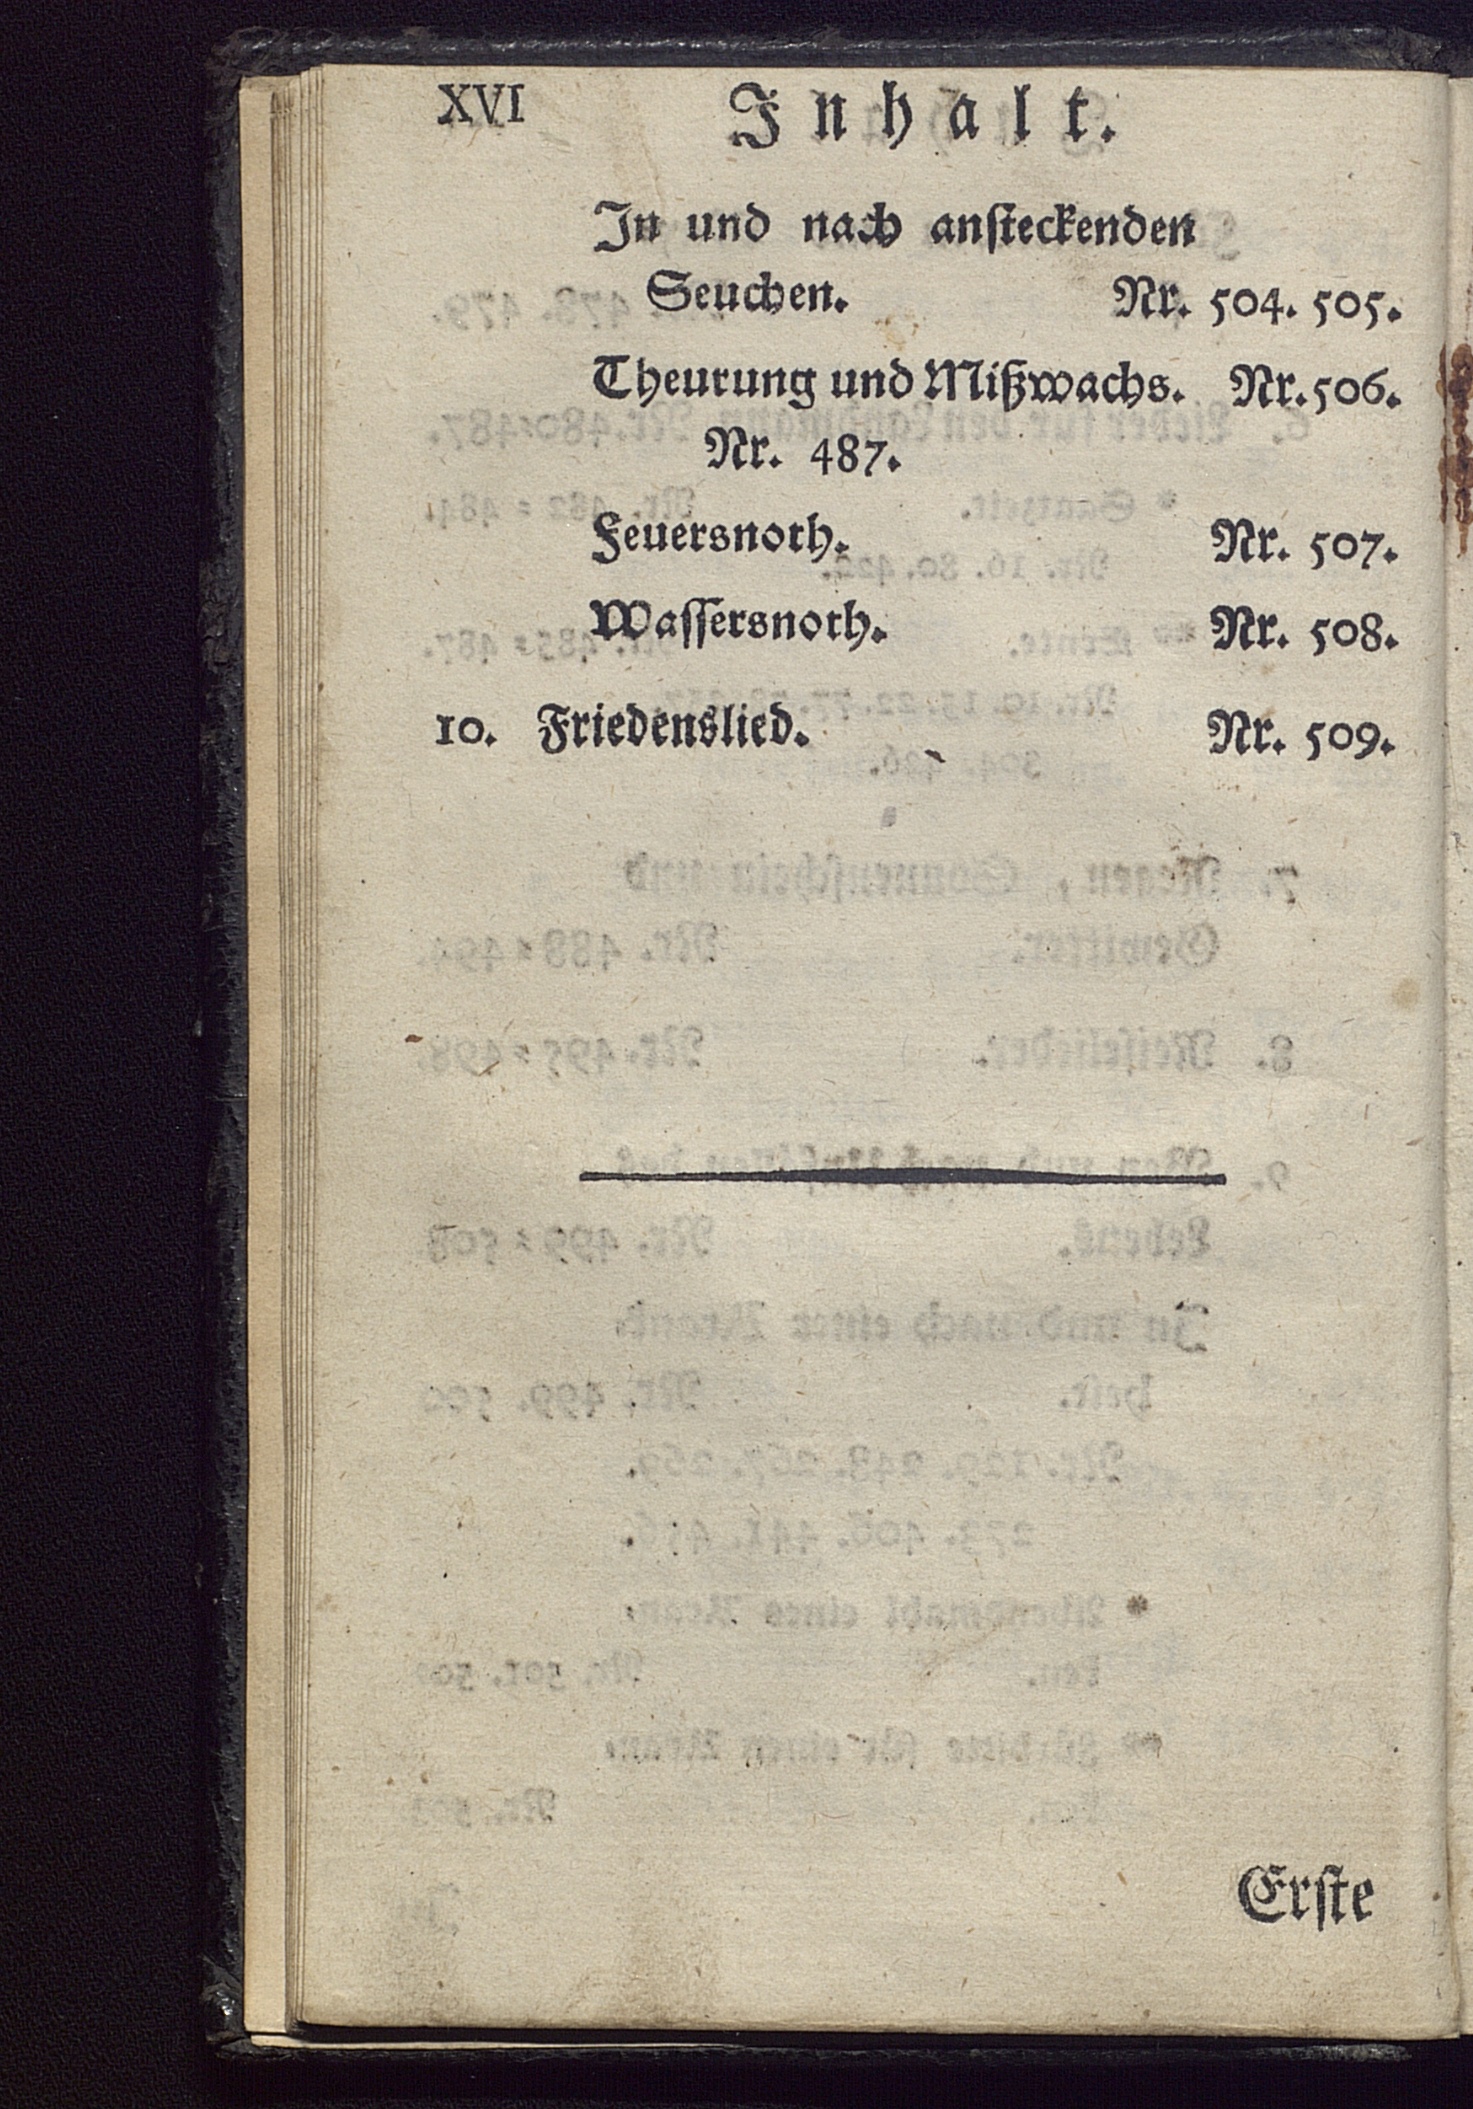 XVI Inhalt.
In und nach anſteckenden
Seuchen. Nr. 504. 505.
Theurung und Mißwachs. Nr. 506.
Nr. 487.
Feuersnoth. Nr. 507.
Waſſersnoth. Nr. 508.
10. Friedenslied. Nr. 509.
Erſte